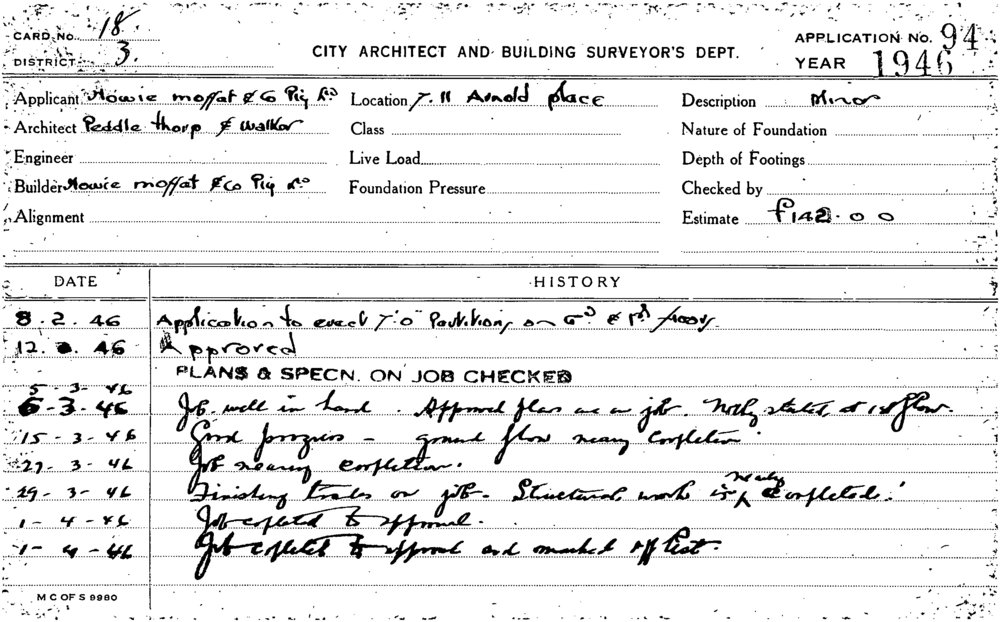 CARD No. 18
DISTRICT 3.
CITY ARCHITECT AND BUILDING SURVEYOR'S DEPT.
APPLICATION No. 94
YEAR 1946
Applicant Howie moffat & Co Pty Ld Location 7.11 Arnold place Description Minor
Architect Peddle thorp & walker Class Nature of Foundation
Engineer Live Load Depth of Footings
Builder Howie moffat & Co Pty Ld Foundation Pressure Checked by
Alignment Estimate £142.0 0
DATE HISTORY
8.2.46 Application to erect 7'0" Partitions on Gd & 1st floors
12. 2. 46 Approved
5-3-46 PLANS & SPECN. ON JOB CHECKED
6-3-46 Job well in hand. Approved plans are on job. started at 1st floor.
15-3-46 Good progress - ground floor neary completion
27-3-46 Job nearing completion.
29-3-46 Finishing trades on job. Structural work is nearly completed.
1-4-46 Job copleted to approval.
1-4-46 Job copleted to approval and marked off list.
M C OF S 9980